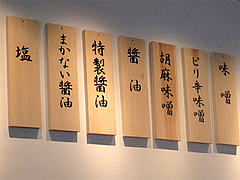 味噌
ピリ辛味噌
胡麻味噌
醤油
特製醤油
まかない醤油
塩